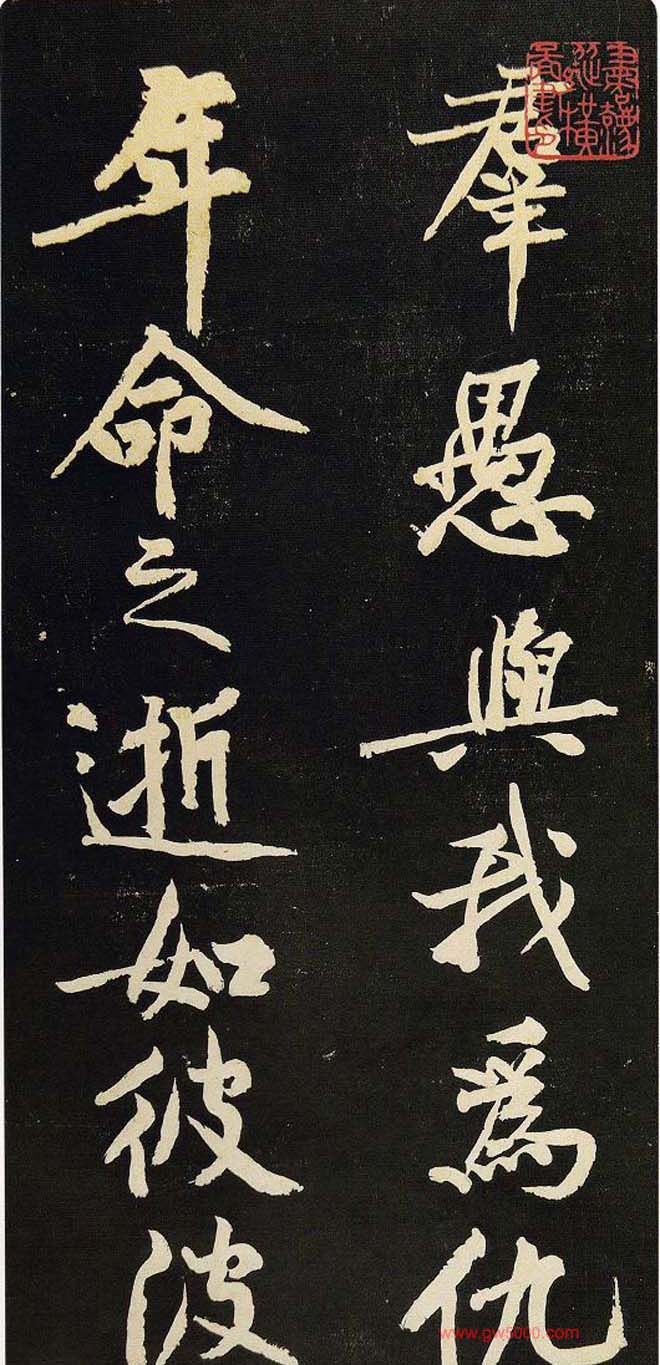 羣愚與我爲仇
年命之逝如彼波
www.gw5000.com